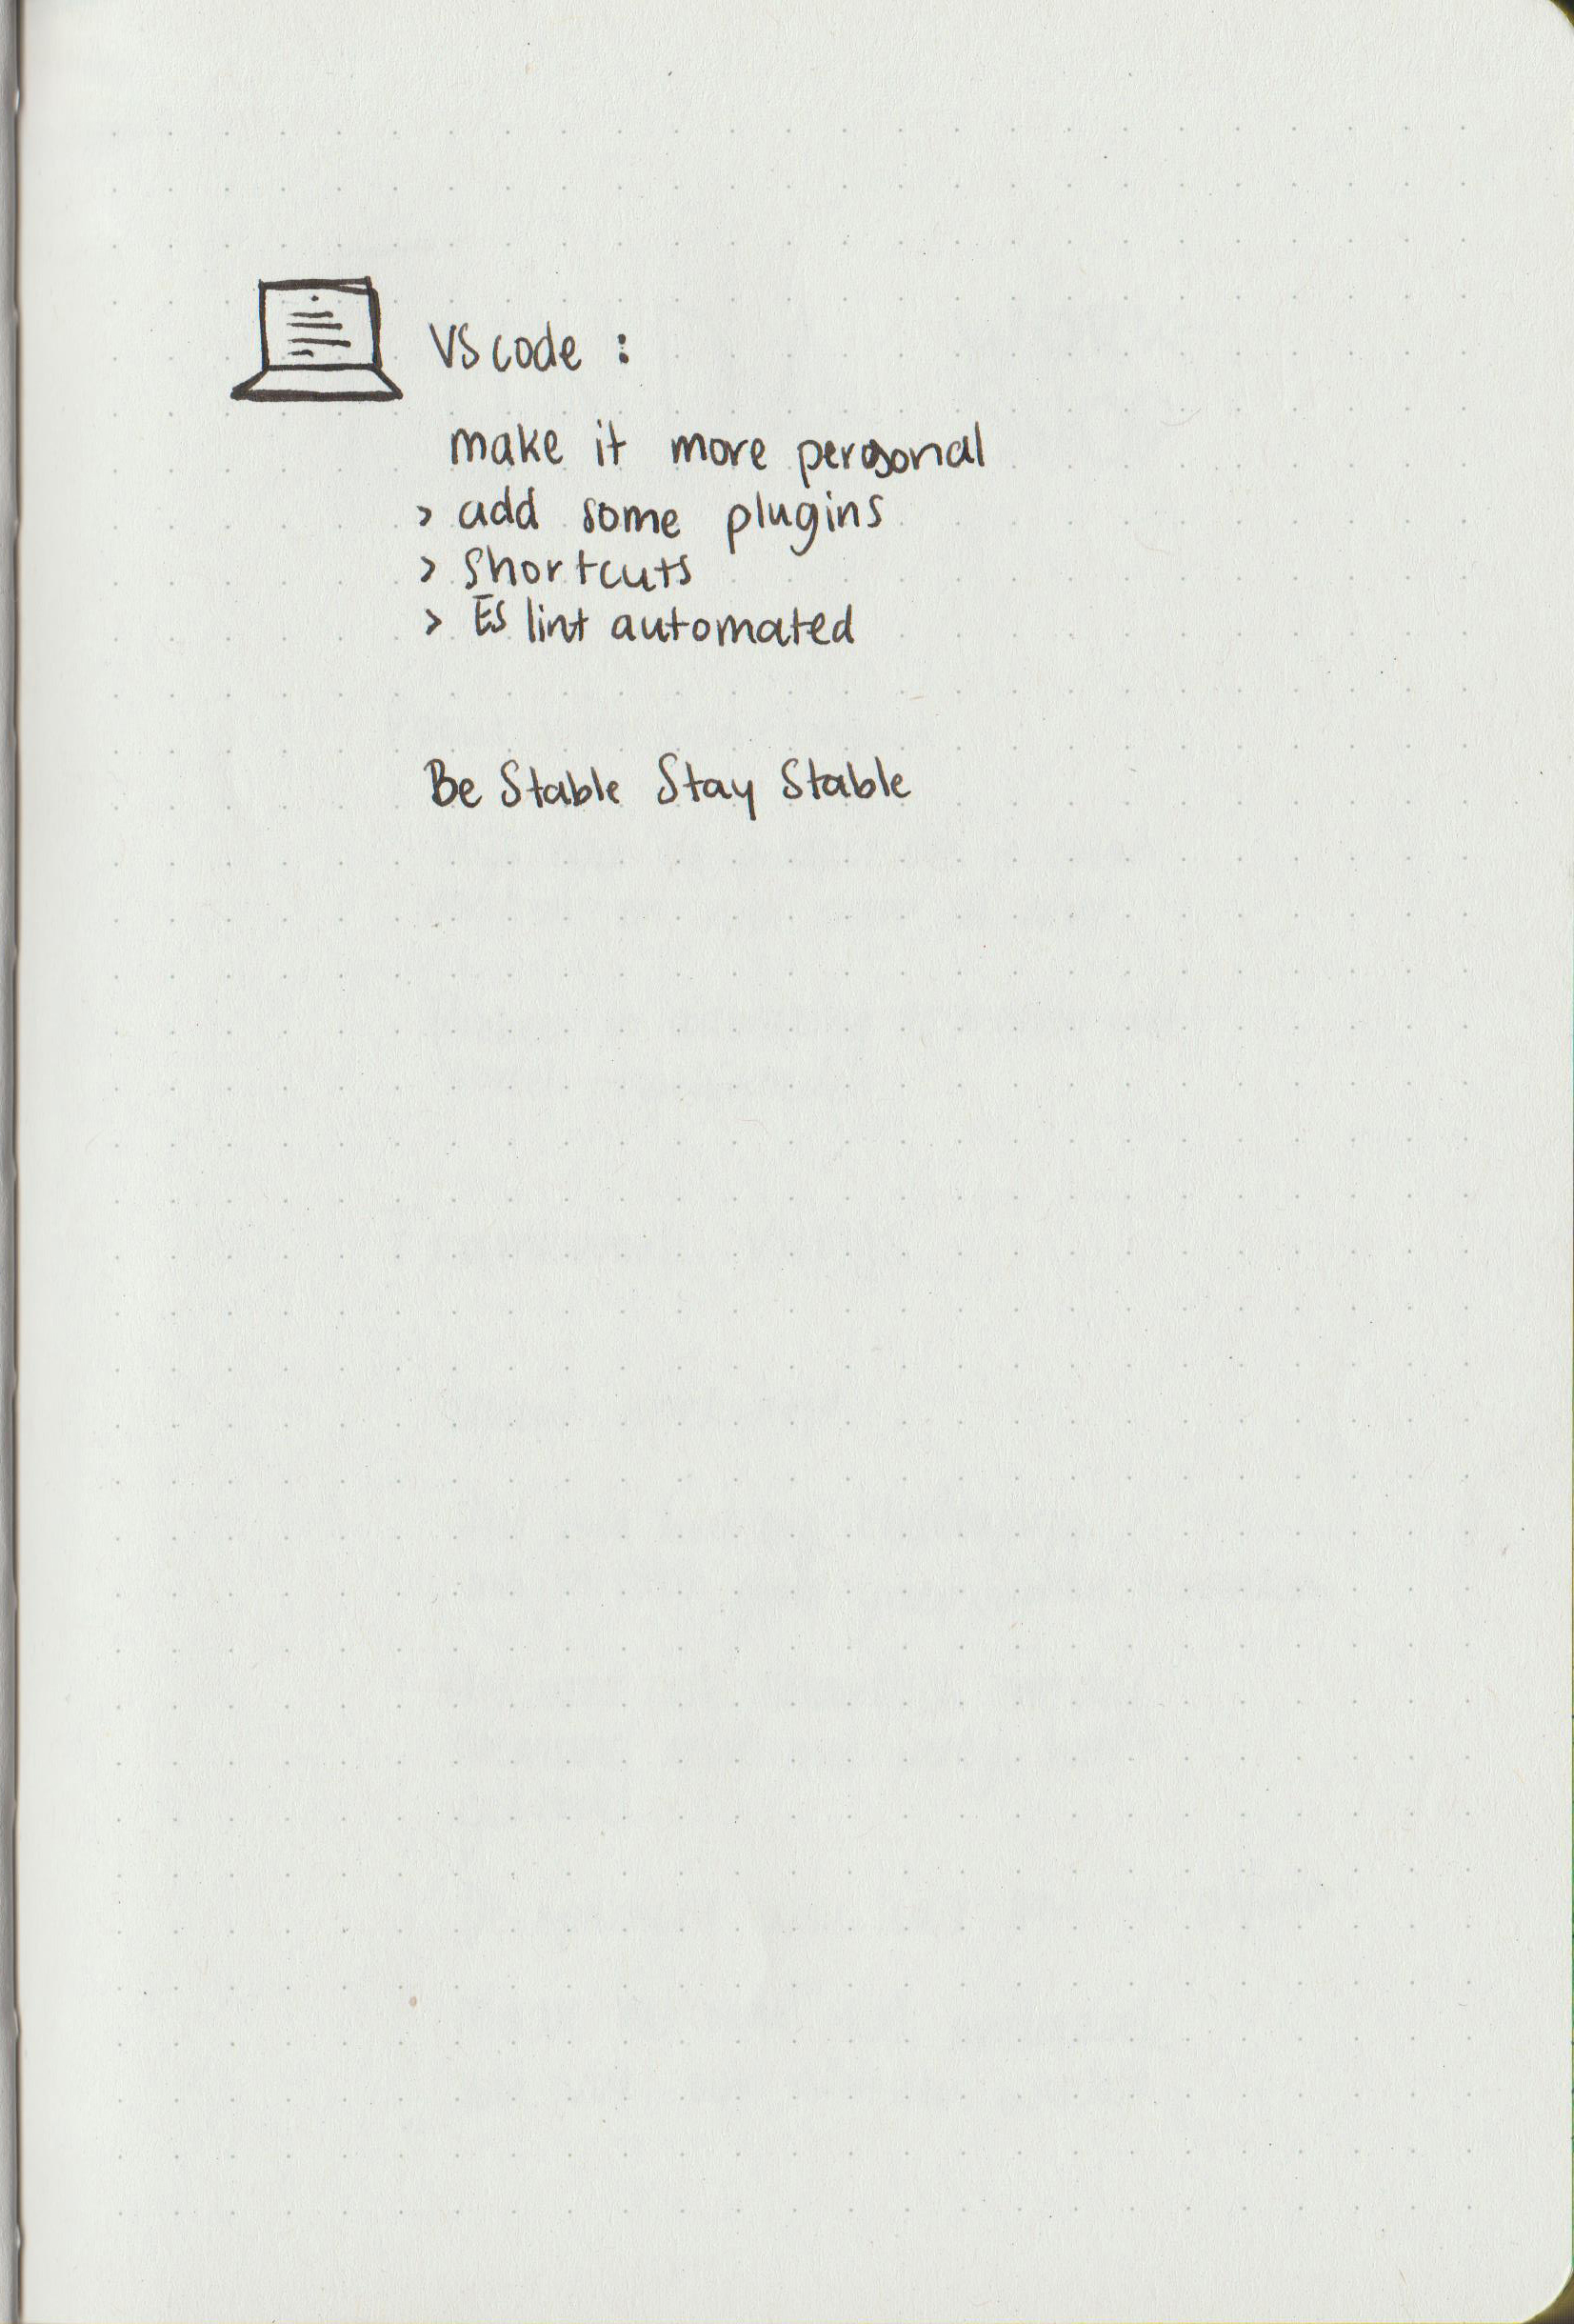 VS code :
make it more personal
> add some plugins
> shortcuts
> ES lint automated
Be Stable Stay Stable